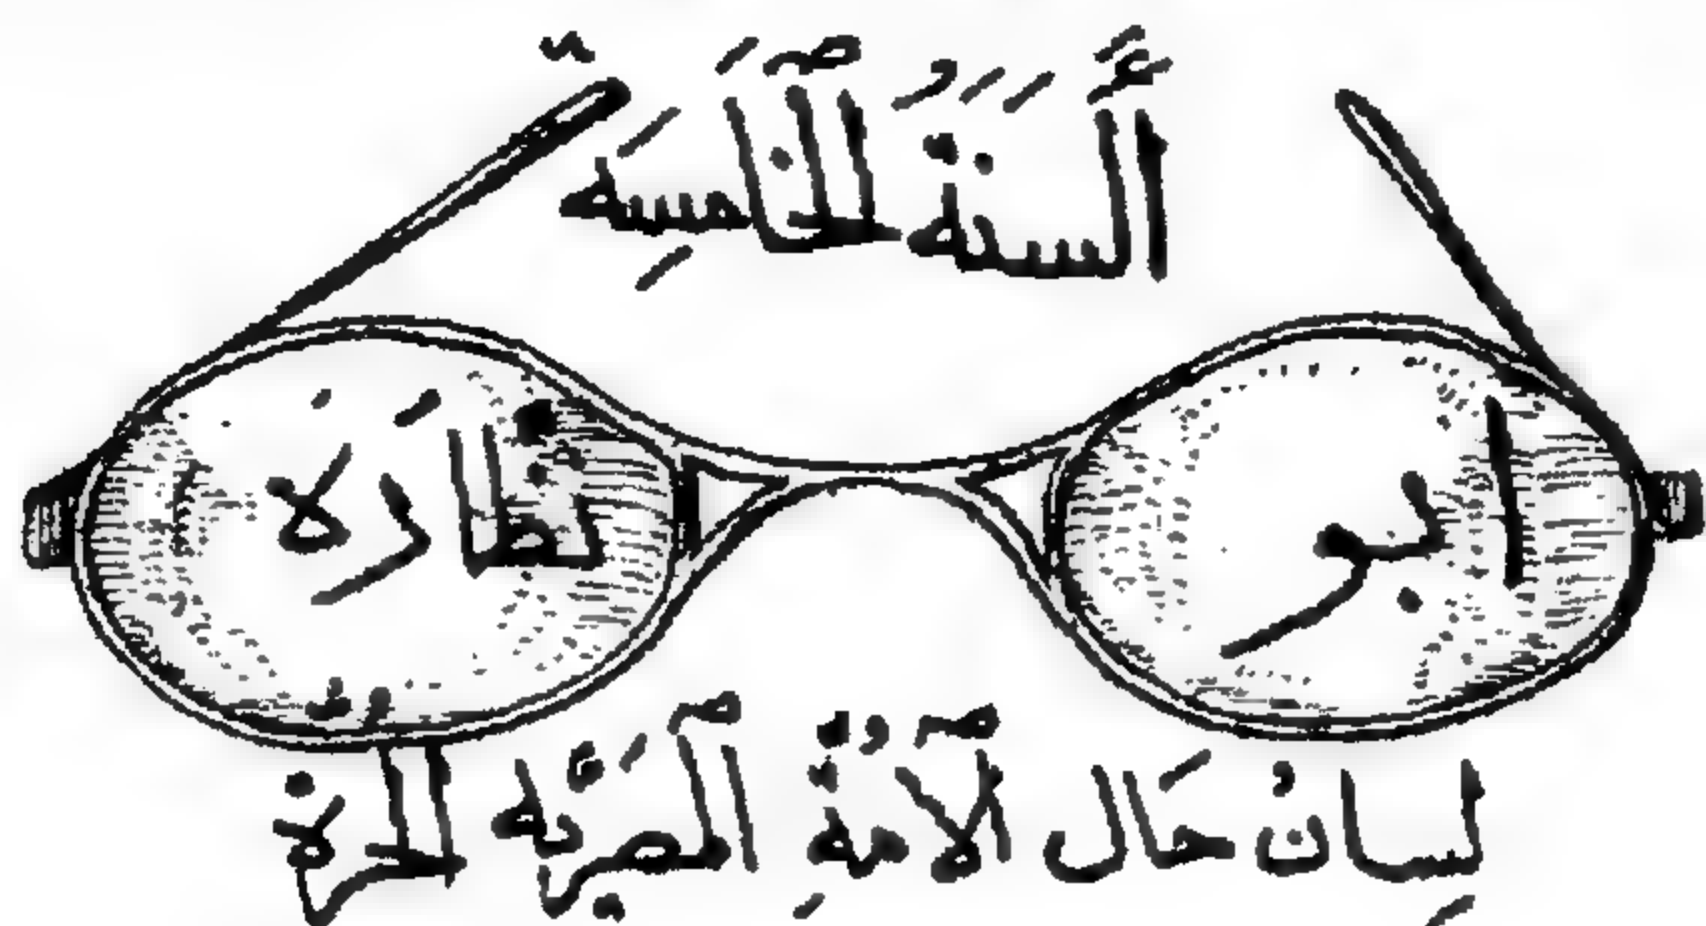 اَلسَنَةُ اَلْخَامِسَة
ابو نَظَّارَة
لِسَانُ حَال الأمةِ المصريّه الحرة